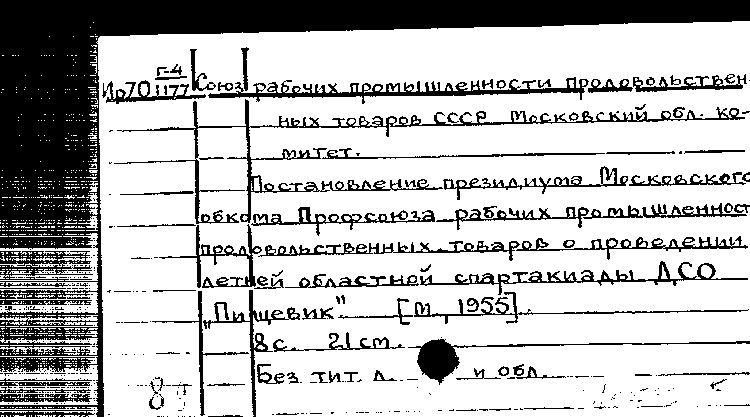 Г-4
Ир70 1177 Союз рабочих промышленности продовольствен-
ных товаров СССР Московский обл. ко-
митет.
Постановление президиума Московского
обкома Профсоюза рабочих промышленност
продовольственных товаров о проведении
летней областной спартакиады ДСО
„Пищевик". [М., 1955].
8 с. 21 см.
Без тит. л. и обл.